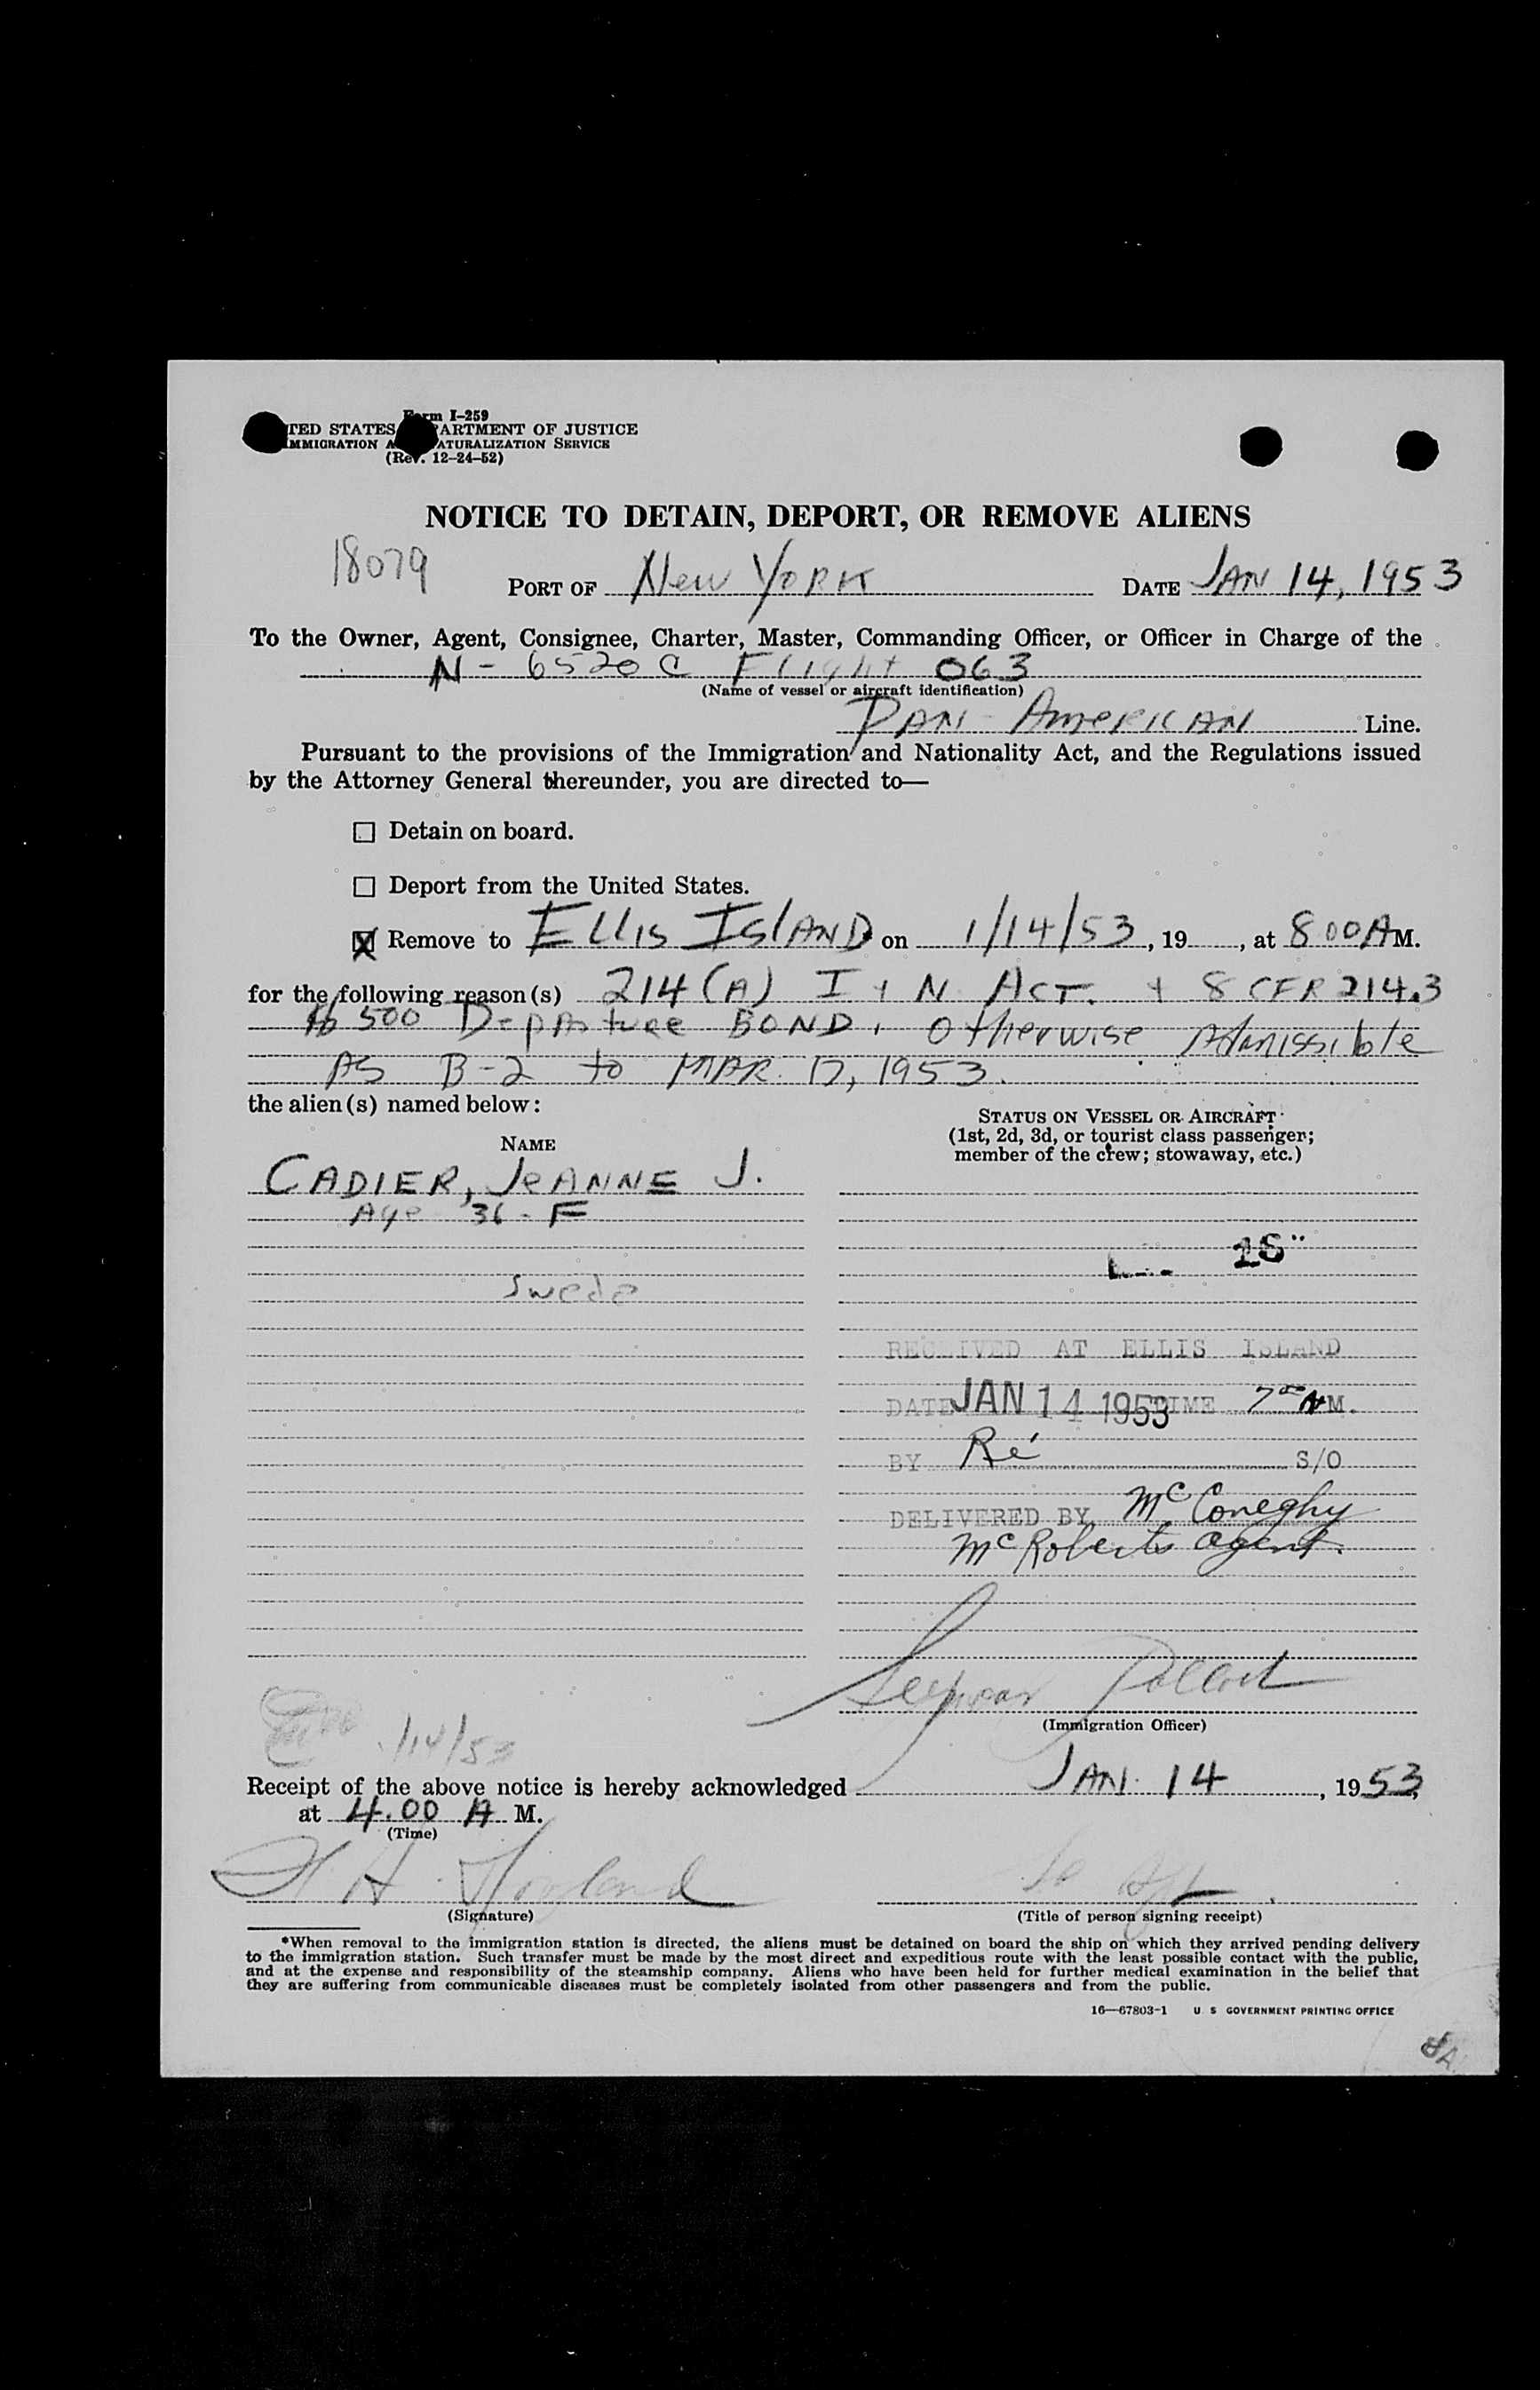 Form I-259
TED STATES ARTMENT OF JUSTICE
MMIGRATION A ATURALIZATION SERVICE
(Rev. 12-24-52)
NOTICE TO DETAIN, DEPORT, OR REMOVE ALIENS
18079
PORT OF New YORK DATE JAN 14, 1953
To the Owner, Agent, Consignee, Charter, Master, Commanding Officer, or Officer in Charge of the
N-6520C Flight 063
(Name of vessel or aircraft identification)
PAN-AMERICAN Line.
Pursuant to the provisions of the Immigration and Nationality Act, and the Regulations issued
by the Attorney General thereunder, you are directed to—
☐ Detain on board.
☐ Deport from the United States.
☒ Remove to ELLIS ISLAND on 1/14/53, 19, at 8:00 A M.
for the following reason(s) 214(A) I + N ACT. + 8 CFR 214.3
500 Departure BOND, otherwise Admissible
AS B-2 to MAR. 17, 1953.
the alien(s) named below:
STATUS ON VESSEL OR AIRCRAFT
(1st, 2d, 3d, or tourist class passenger;
member of the crew; stowaway, etc.)
NAME
CADIER, JEANNE J.
Age 36 - F
Swede
RECEIVED AT ELLIS ISLAND
DATE JAN 14 1953 TIME 7 00 A M.
BY Ré S/O
DELIVERED BY McConeghy
McRoberts agent.
Seymour Pollack
(Immigration Officer)
1/14/53
Receipt of the above notice is hereby acknowledged JAN. 14, 1953,
at 4.00 A M.
(Time)
(Signature)
(Title of person signing receipt)
*When removal to the immigration station is directed, the aliens must be detained on board the ship on which they arrived pending delivery
to the immigration station. Such transfer must be made by the most direct and expeditious route with the least possible contact with the public,
and at the expense and responsibility of the steamship company. Aliens who have been held for further medical examination in the belief that
they are suffering from communicable diseases must be completely isolated from other passengers and from the public.
16—67803-1 U S GOVERNMENT PRINTING OFFICE